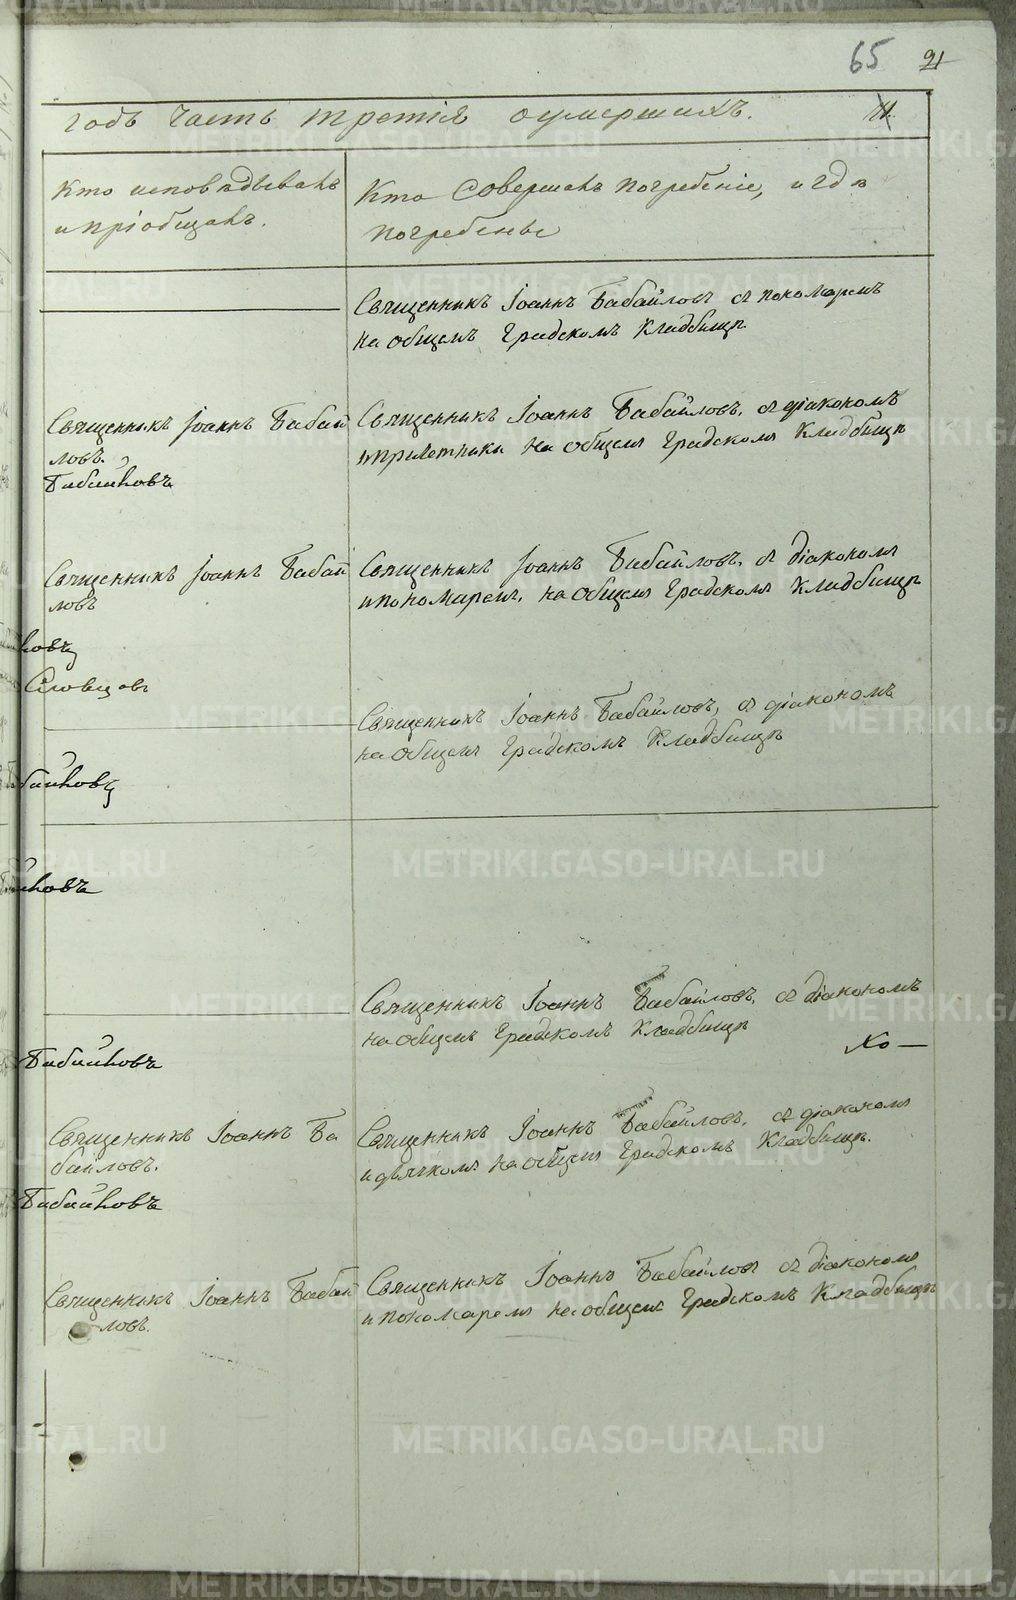 65 21
годъ часть третія о умершихъ.
Кто исповѣдывалъ
и пріобщалъ.
Кто совершалъ погребеніе, и гдѣ
погребены
Священникъ Іоаннъ Бабайловъ съ пономаремъ
на общемъ Градскомъ Кладбищѣ
Священникъ Іоаннъ Бабай
ловъ.
Бабайловъ
Священникъ Іоаннъ Бабайловъ, съ діакономъ
и причетники на общемъ Градскомъ Кладбищѣ
Священникъ Іоаннъ Бабай
ловъ
Священникъ Іоаннъ Бабайловъ, съ діакономъ
и пономаремъ, на общемъ Градскомъ Кладбищѣ
Словцовъ
Священникъ Іоаннъ Бабайловъ, съ діакономъ
на общемъ Градскомъ Кладбищѣ
Священникъ Іоаннъ Бабайловъ, съ діакономъ
на общемъ Градскомъ Кладбищѣ
Хо —
Бабайловъ
Священникъ Іоаннъ Ба
байловъ.
Бабайловъ
Священникъ Іоаннъ Бабайловъ, съ діакономъ
и дьячкомъ на общемъ Градскомъ Кладбищѣ.
Священникъ Іоаннъ Бабай
ловъ.
Священникъ Іоаннъ Бабайловъ съ діакономъ
и пономаремъ на общемъ Градскомъ Кладбищѣ
METRIKI.GASO-URAL.RU